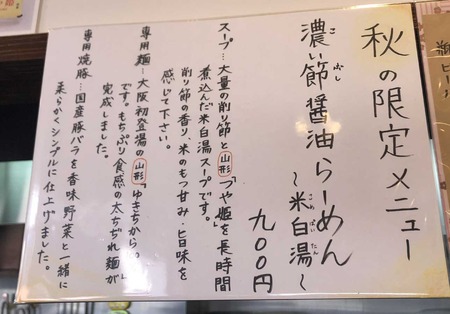 秋の限定メニュー
濃い節醤油らーめん
こ
ぶし
～米白湯～
こめぱいたん
九〇〇円
スープ…大量の削り節と山形「つや姫」を長時間
煮込んだ米白湯スープです。
削り節の香り、米のもつ甘み・旨味を
感じて下さい。
専用麺…大阪初登場の山形「ゆきちから。」
です。もちぷり食感の太ちぢれ麺が
完成しました。
専用焼豚…国産豚バラを香味野菜と一緒に
柔らかくシンプルに仕上げました。